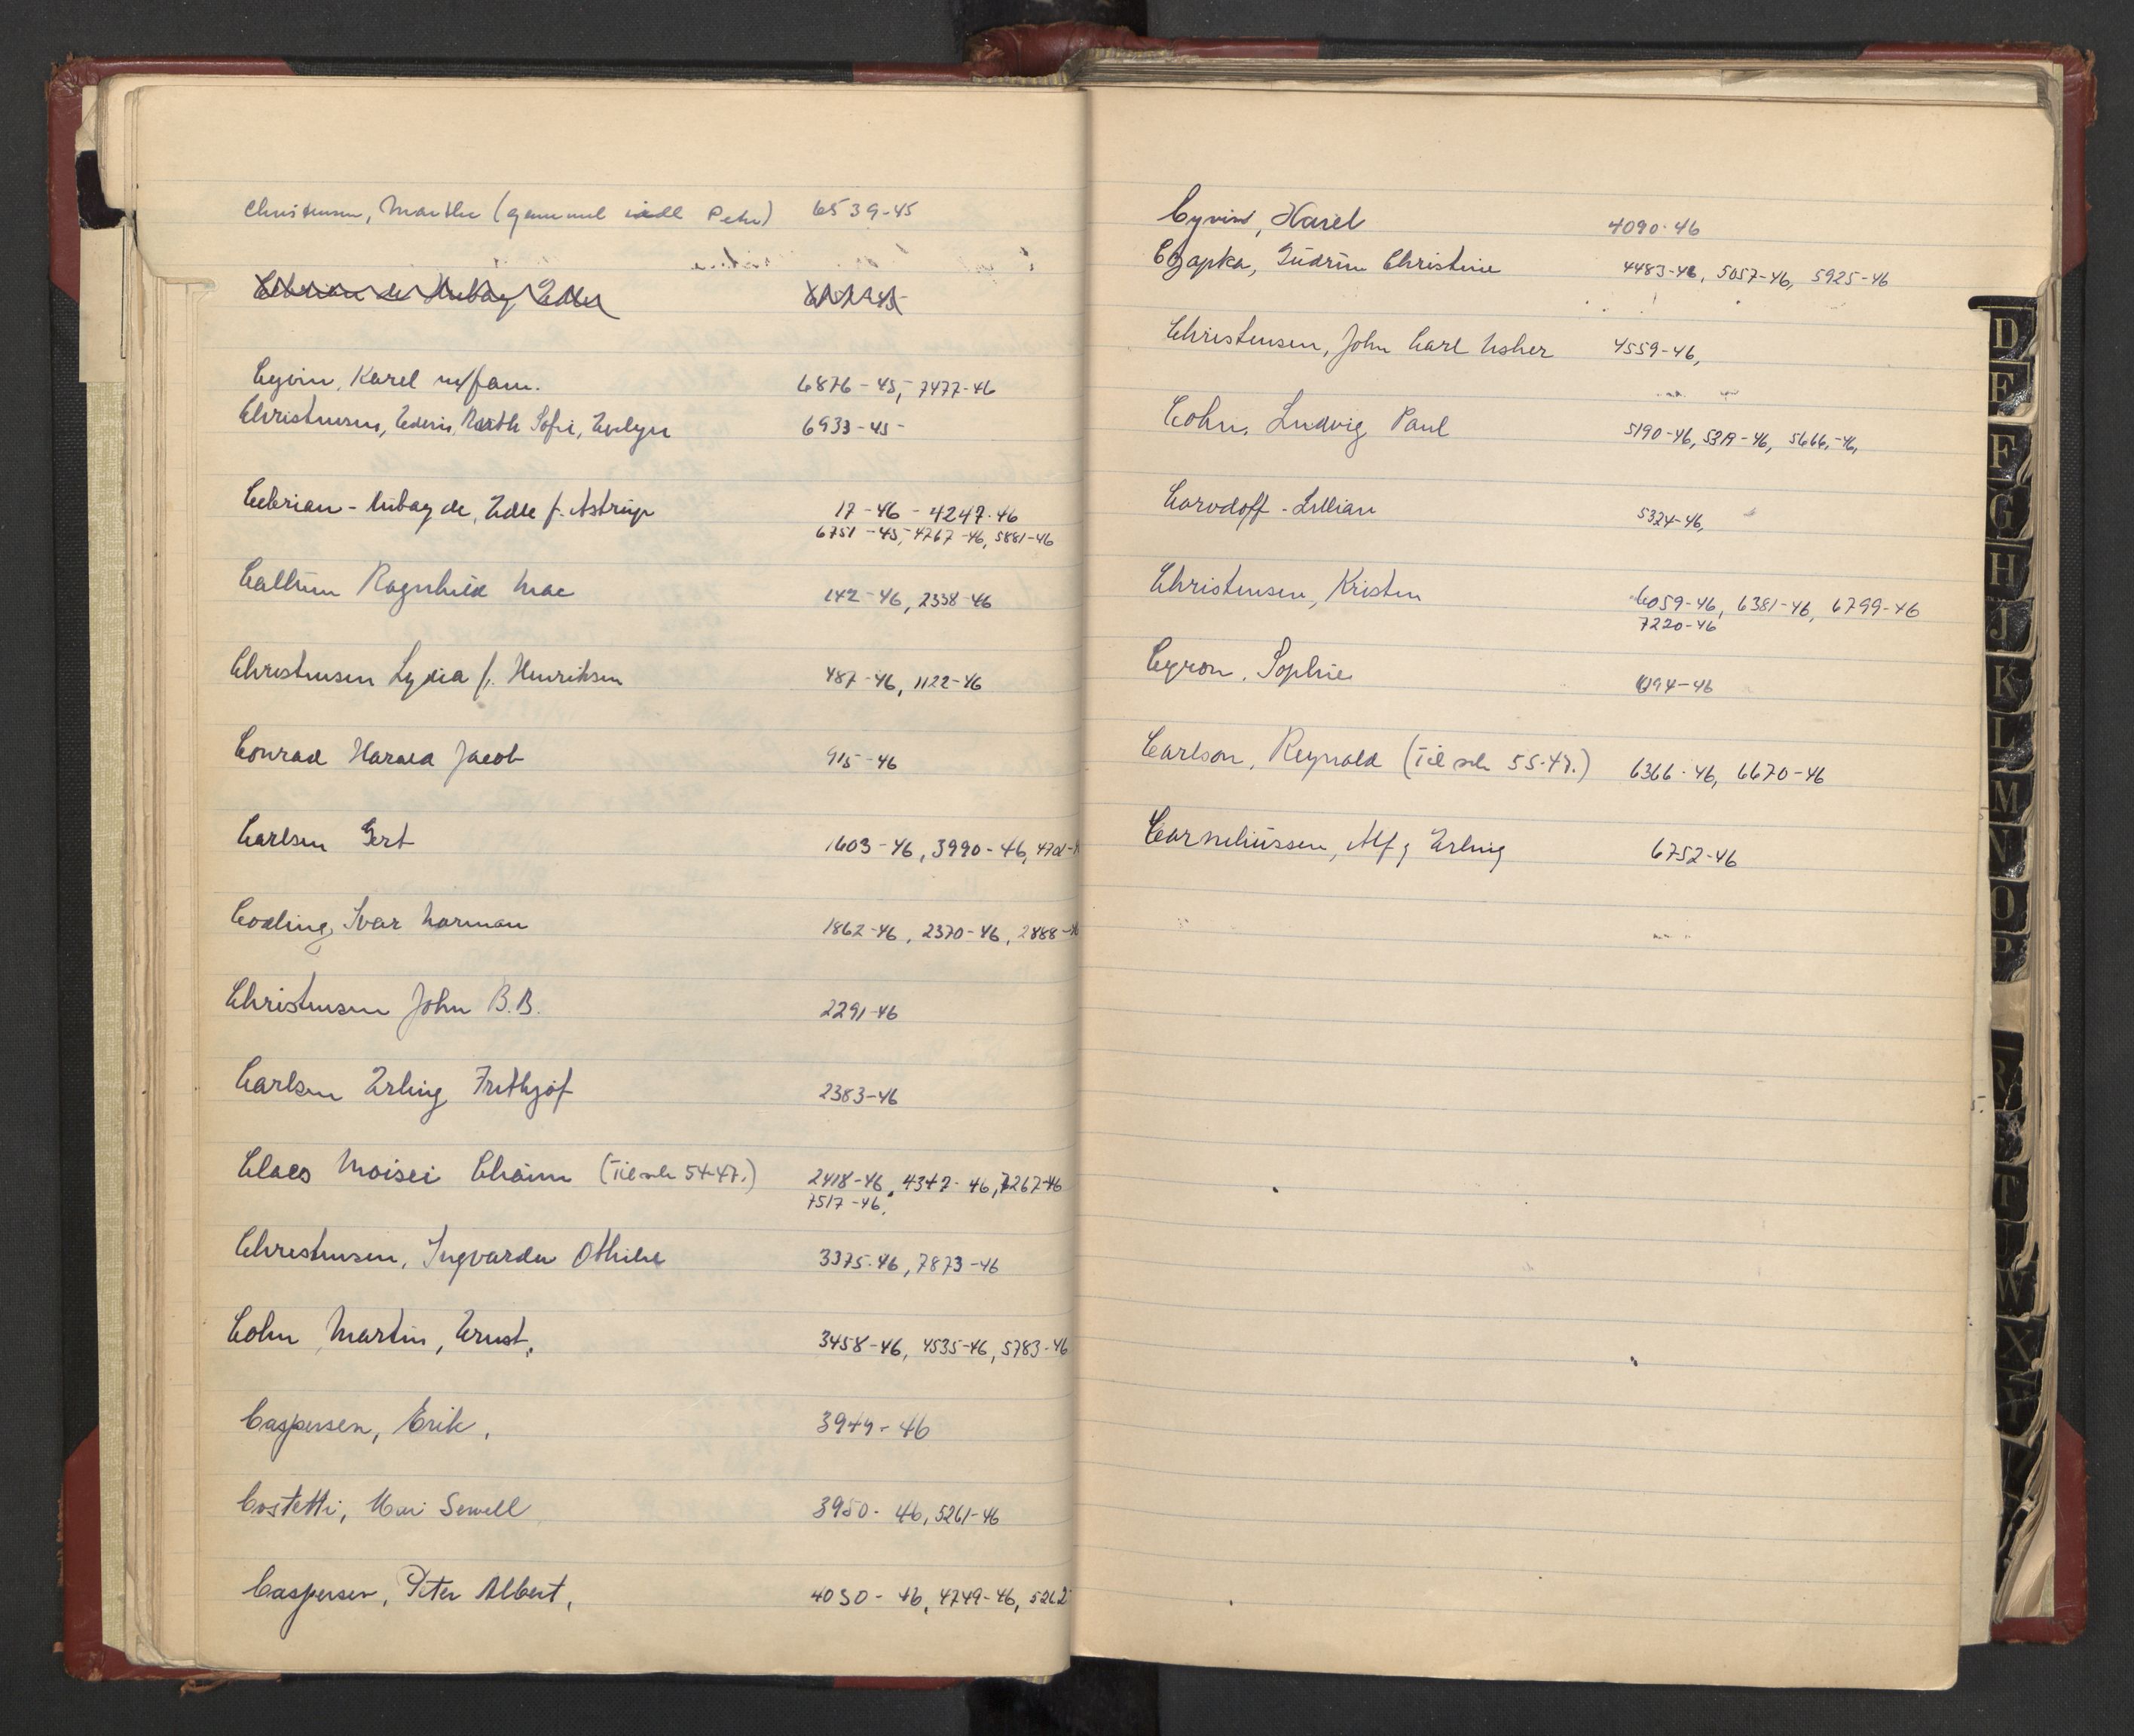 Christensen, Marthe (gammel Petri) 6539-45
Cebrian de Hubay Edle
Cyvin, Karel m/fam. 6876-45, 7477-46
Christensen, Edvin, Marth Sofie, Evelyn 6933-45
Cebrian-Mibay de, Edle f. Astrup 17-46 - 4247-46
6751-45, 4767-46, 5881-46
Callum Ragnhild Mac 142-46, 2338-46
Christensen Lydia f. Henriksen 487-46, 1122-46
Conrad Harald Jacob 915-46
Carlsen Gert 1603-46, 3990-46,
Codling, Ivar Norman 1862-46, 2370-46, 2888-46
Christensen John B.B. 2291-46
Carlsen Erling Frithjof 2383-46
Claes Moisei Chaim (Tilsvh 54-47.) 2418-46, 4347-46, 7267-46
7517-46,
Christensen, Ingvarda Othilie 3375-46, 7873-46
Cohn Martin, Ernst, 3458-46, 4535-46, 5783-46
Caspersen, Erik, 3949-46
Costetti, Mai Sewell 3950-46, 5261-46
Caspersen, Peter Albert, 4030-46, 4749-46, 5262
Cyvin, Karel 4090-46
Czapka, Gudrun Christine 4483-46, 5057-46, 5925-46
Christensen, John Carl Usher 4559-46,
Cohn, Ludvig Paul 5190-46, 5319-46, 5666-46,
Corvdoff-Lillian 5324-46,
Christensen, Kristen 6059-46, 6381-46, 6799-46
7220-46
Cyron, Sophie 6194-46
Carlson, Reynold (Tilsvh 55-47.) 6366-46, 6670-46
Corneliussen, Alf, Erling 6752-46
D
E
F
G
H
J
K
L
M
N
O
P
R
S
T
U
W
X
Y